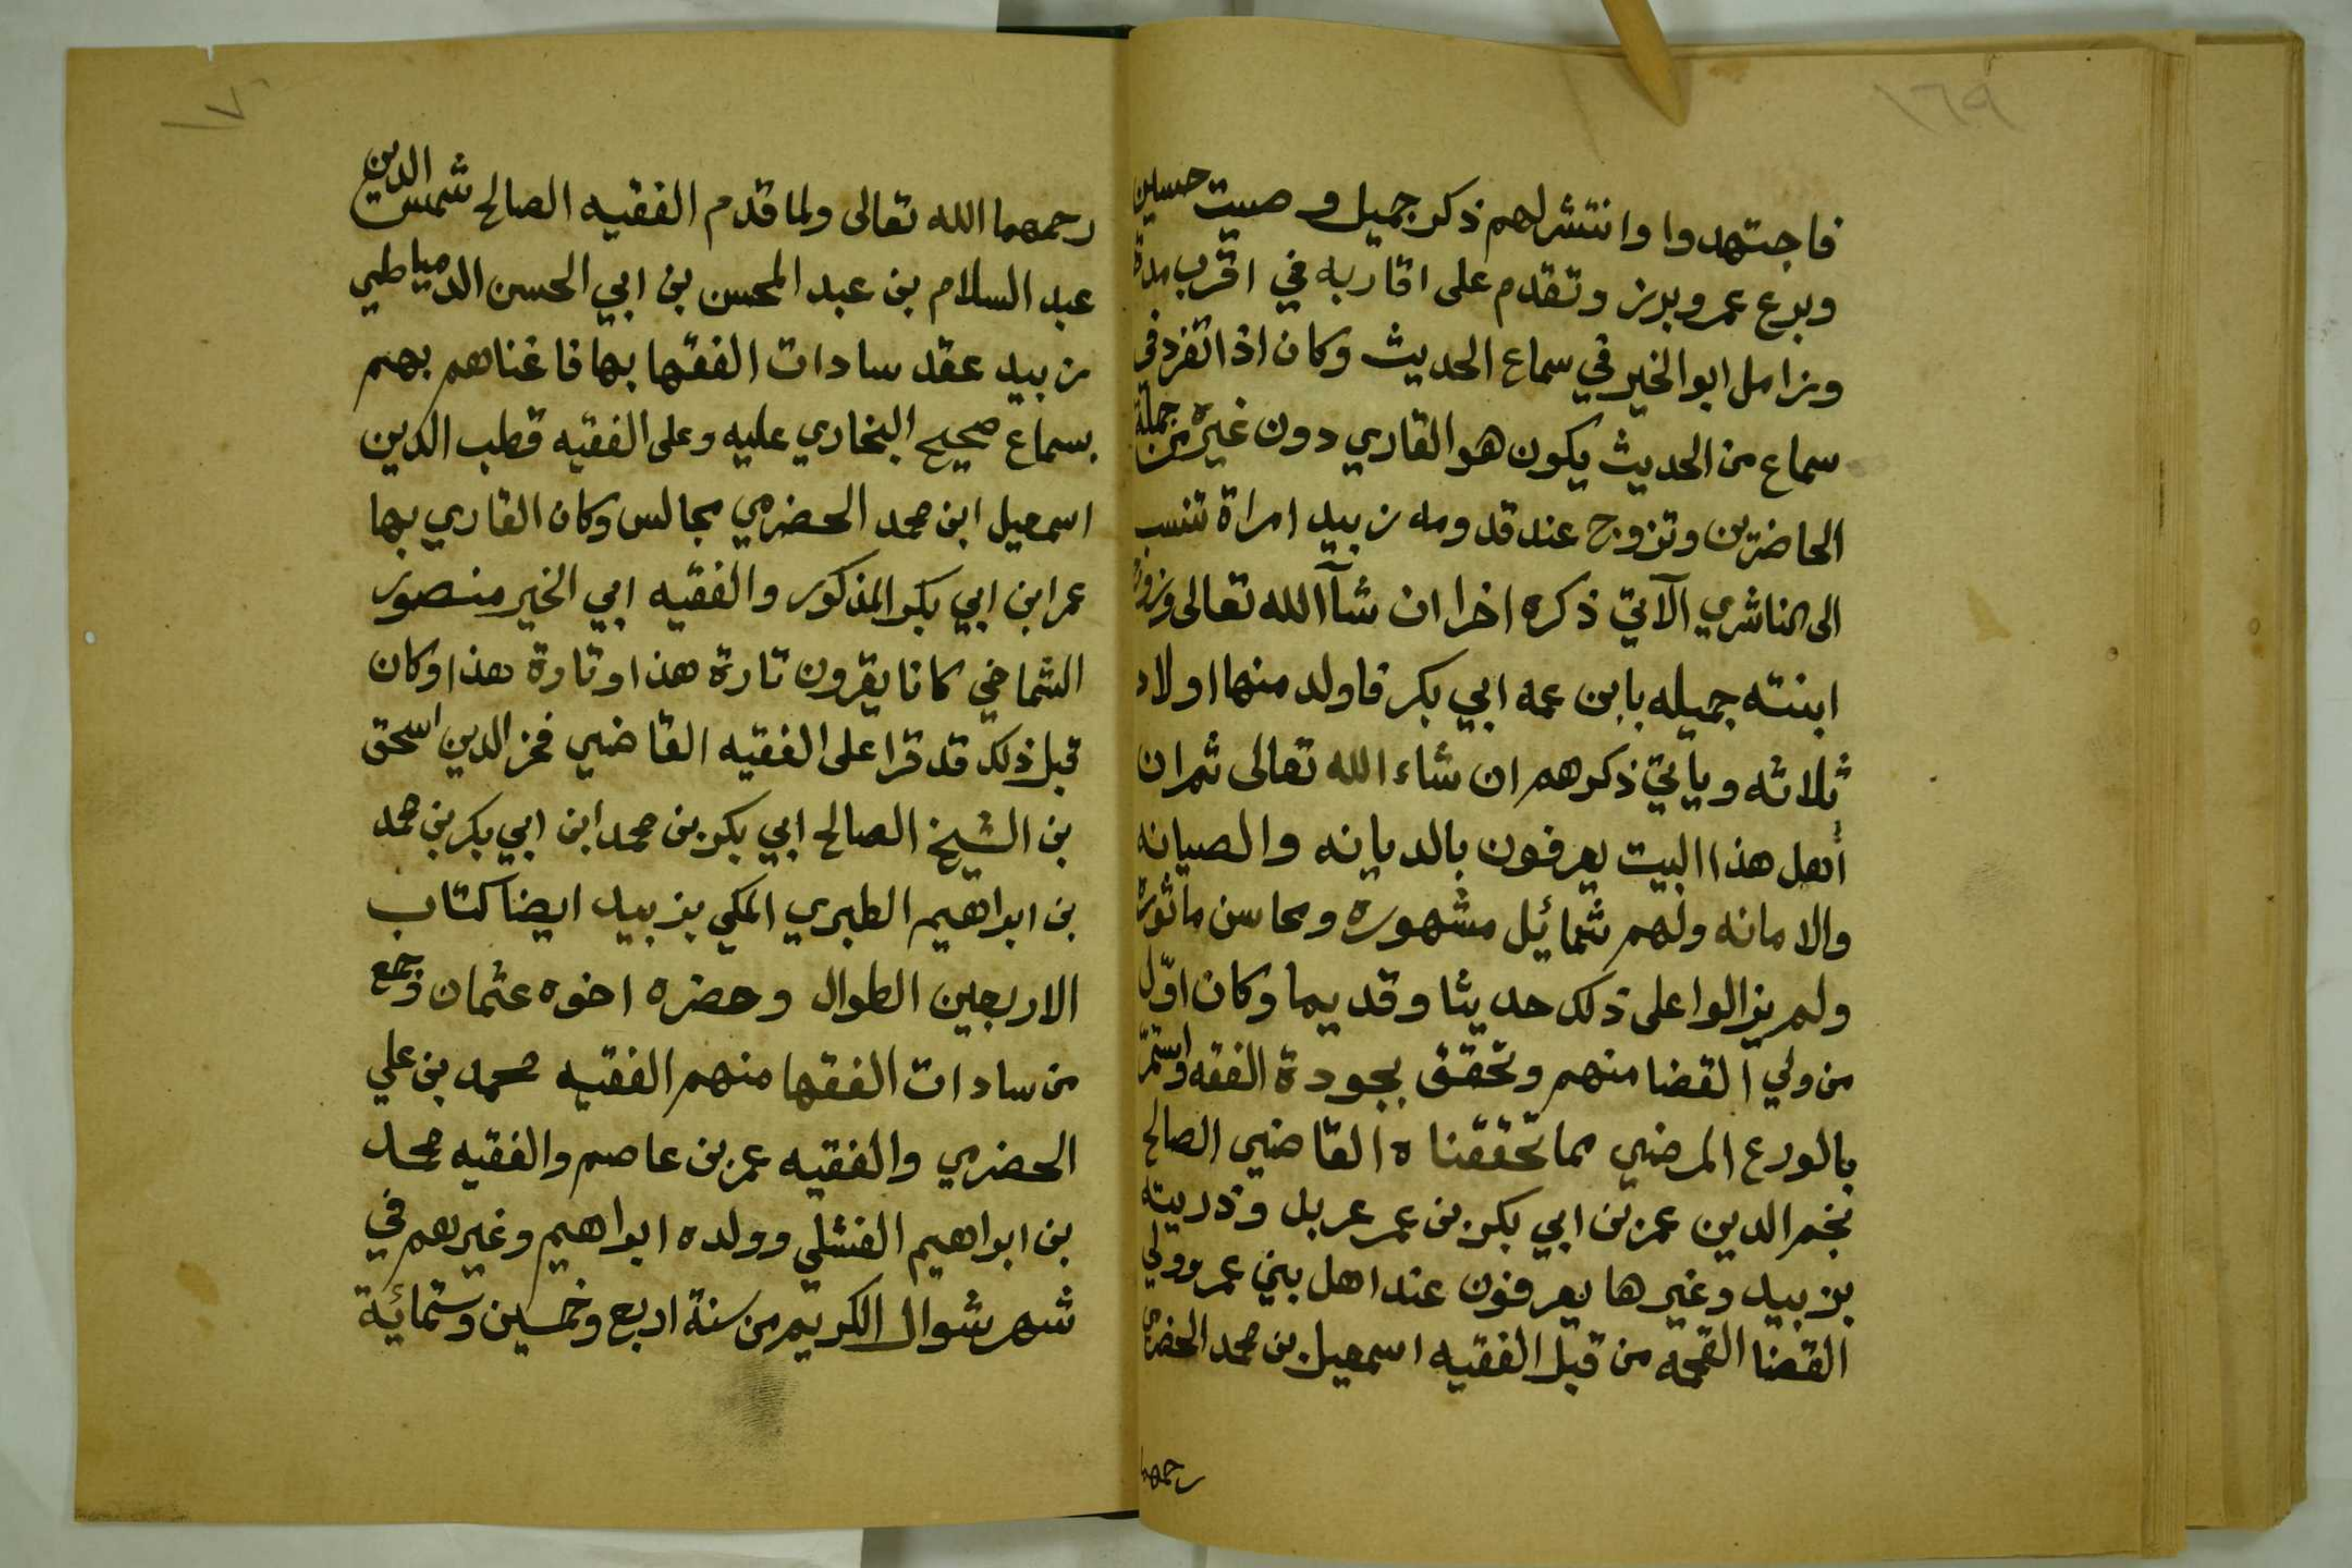 ١٦٩
فاجتهدوا وانتشر لهم ذكر جميل وصيت حسين
وبرع عمر وبرز وتقدم على اقاربه في اقرب مدة
وزامل ابو الخير في سماع الحديث وكان اذا اتفرد في
سماع من الحديث يكون هو القاري دون غيره من جملة
الحاضرين وتزوج عند قدومه زبيد امراة تنسب
الى الناشري الآتي ذكره اخرا ان شآ الله تعالى وزوج
ابنته جميله بابن عمه ابي بكر فاولد منها اولاد
ثلاثه وياتي ذكرهم ان شاء الله تعالى ثم ان
أهل هذا البيت يعرفون بالديانه والصيانه
والامانه ولهم شمائل مشهوره ومحاسن ماثورة
ولم يزالوا على ذلك حديثا وقديما وكان اوّل
من ولي القضا منهم وتحقق بجودة الفقه واستمرّ
بالورع المرضي مما تحققناه القاضي الصالح
نجم الدين عمر بن ابي بكر بن عمر عربل وذريته
بزبيد وغيرها يعرفون عند اهل بيني عمر وولي
القضا القحمه من قبل الفقيه اسمعيل بن محمد الحضرمي
رحمهما
١٧٠
رحمهما الله تعالى ولما قدم الفقيه الصالح شمس الدين
عبد السلام بن عبد المحسن بن ابي الحسن الدمياطي
زبيد عقد سادات الفقها بها فاغناهم بهم
بسماع صحيح البخاري عليه وعلى الفقيه قطب الدين
اسمعيل ابن محمد الحضرمي مجالس وكان القاري بها
عمر ابن ابي بكر المذكور والفقيه ابي الخير منصور
الشماخي كانا يقرون تارة هذا وتارة هذا وكان
قبل ذلك قد قرا على الفقيه القاضي فخر الدين اسحق
بن الشيخ الصالح ابي بكر بن محمد ابن ابي بكر بن محمد
بن ابراهيم الطبري المكي بزبيد ايضا كتاب
الاربعين الطوال وحضره اخوه عثمان وجمع
من سادات الفقها منهم الفقيه محمد بن علي
الحضرمي والفقيه عمر بن عاصم والفقيه محمد
بن ابراهيم الفشلي وولده ابراهيم وغيرهم في
شهر شوال الكريم من سنة اربع وخمسين وستمائة